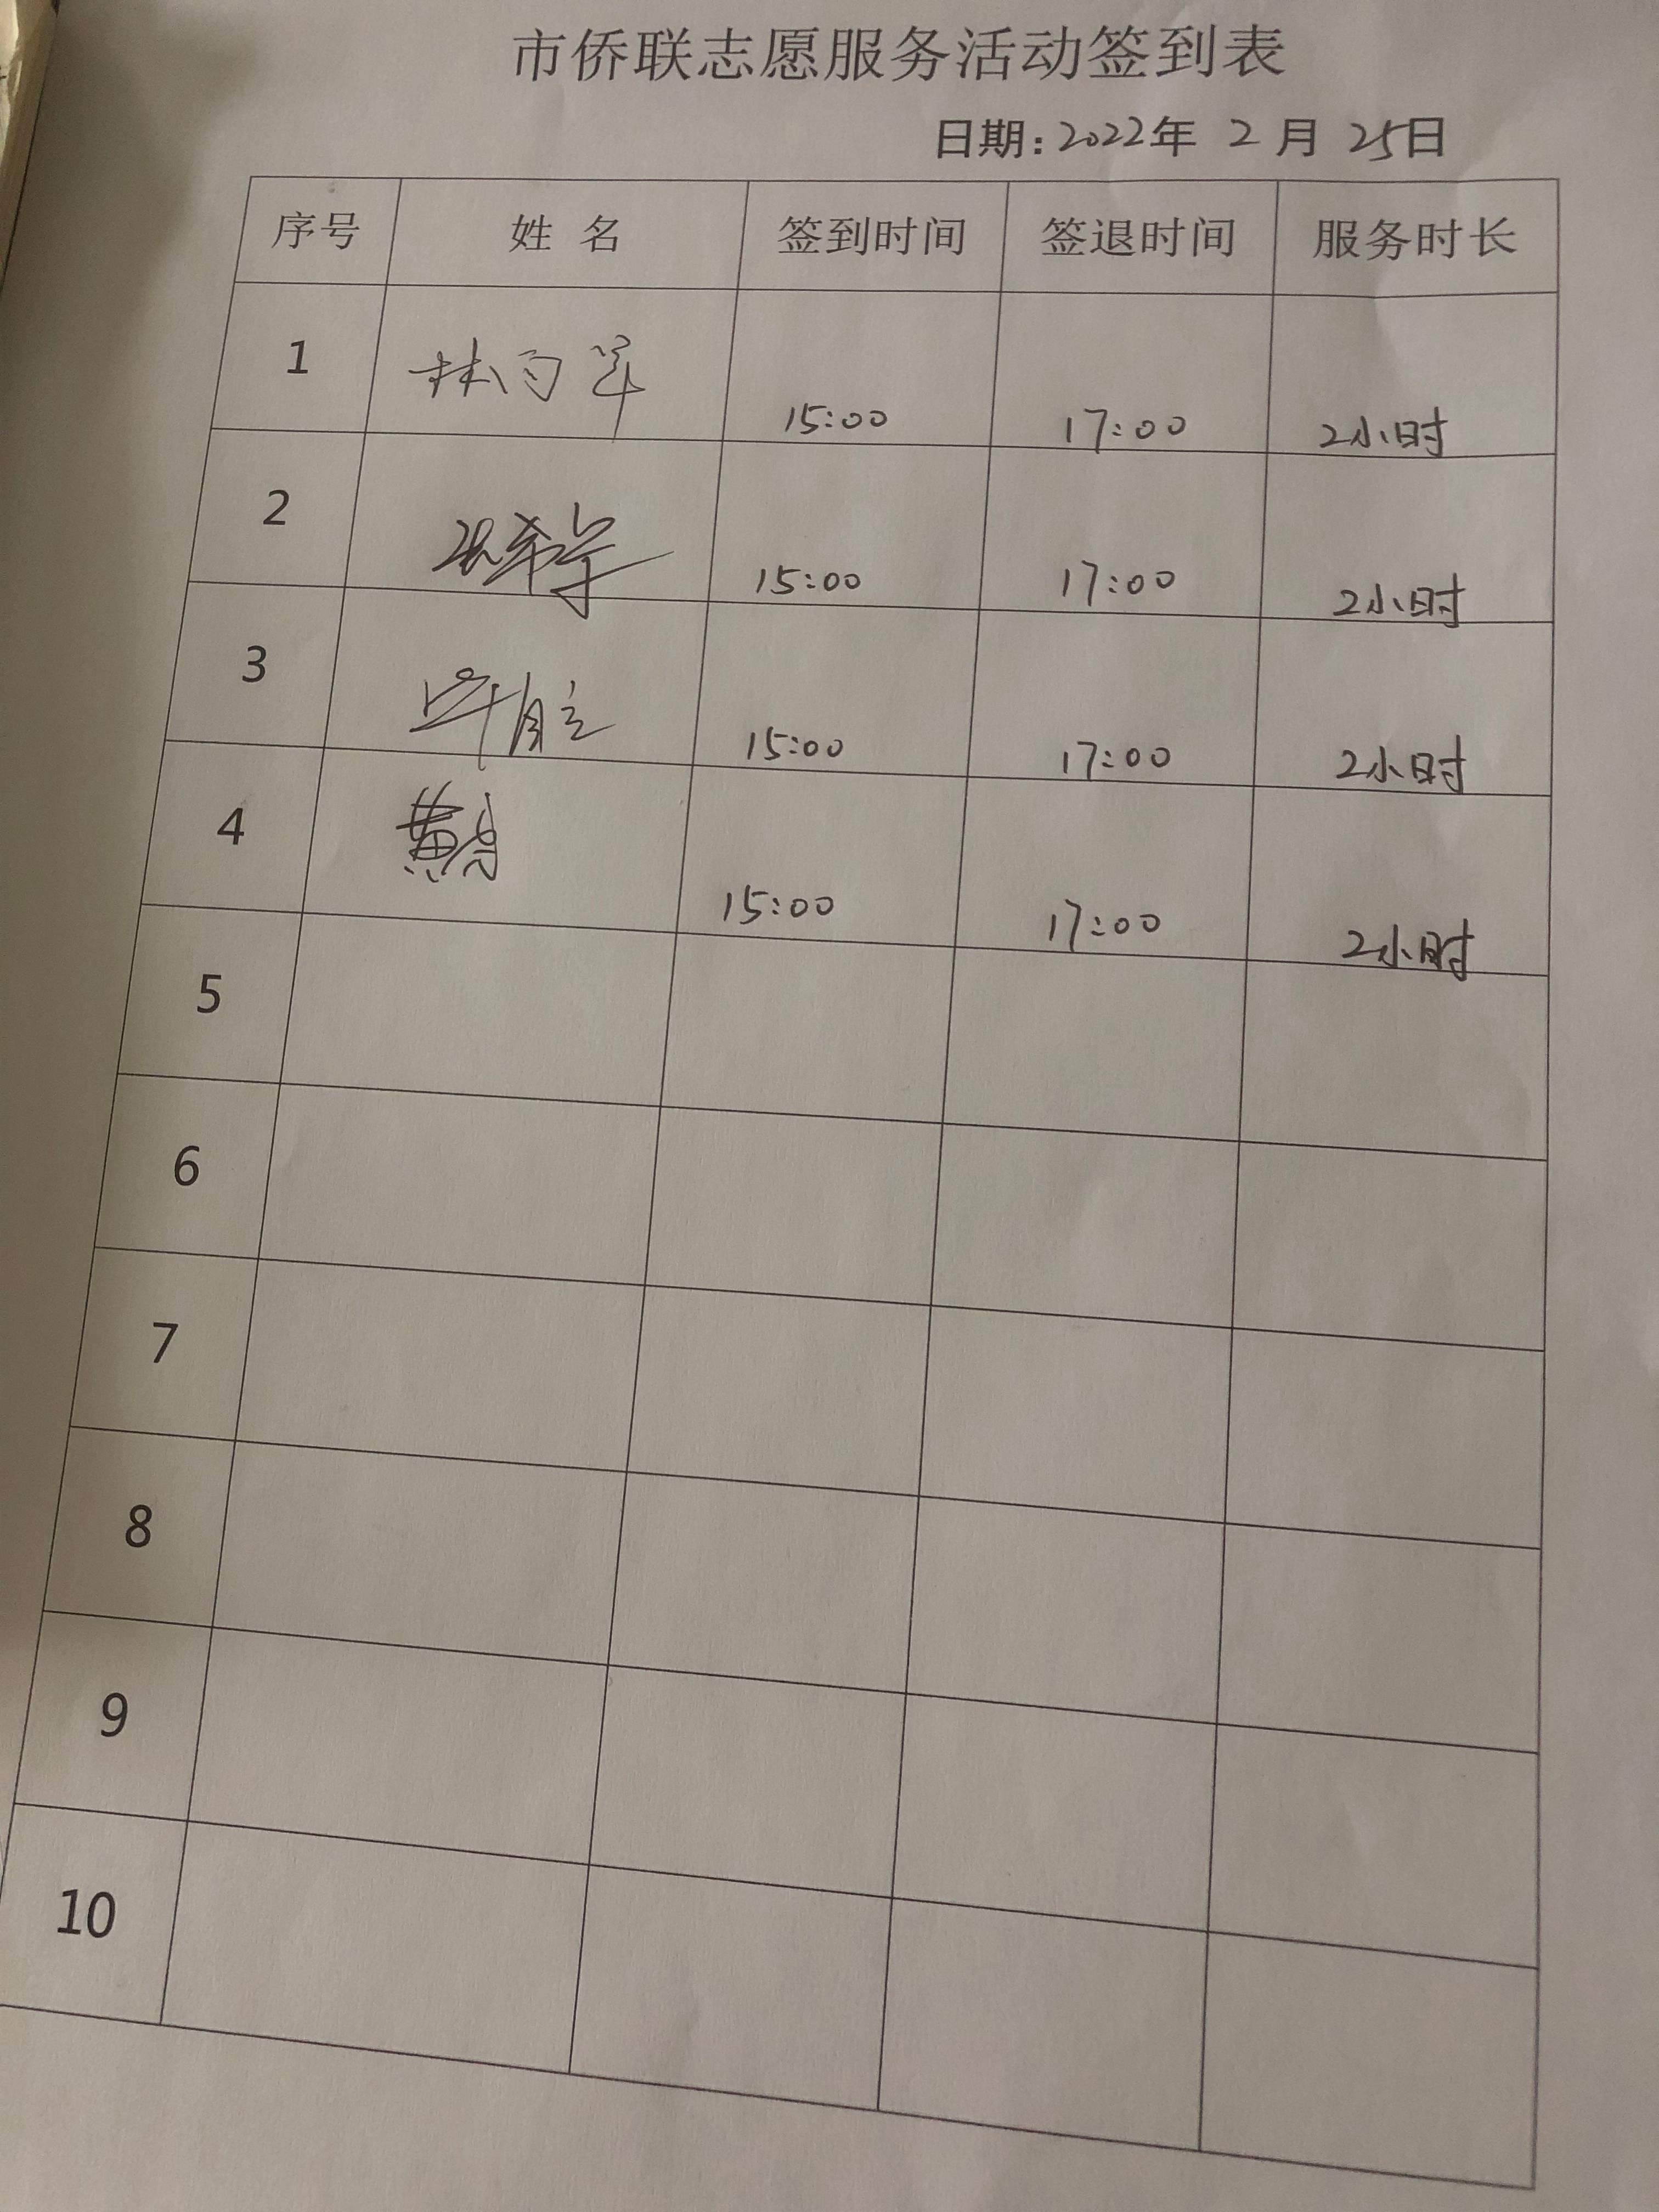 市侨联志愿服务活动签到表
日期:2022年 2 月 25日
序号 姓 名 签到时间 签退时间 服务时长
1 15:00 17:00 2小时
2 15:00 17:00 2小时
3 15:00 17:00 2小时
4 黄 15:00 17:00 2小时
5
6
7
8
9
10